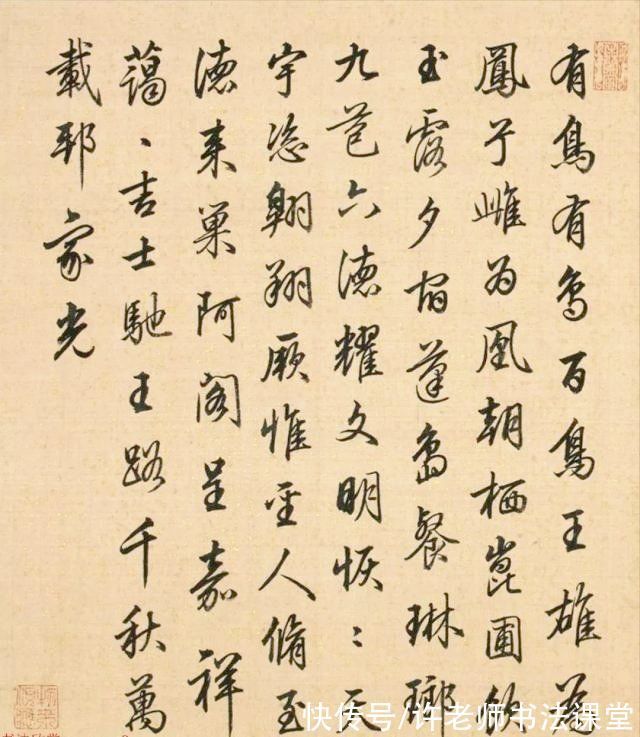 有鳥有鳥百鳥王雄為
鳳兮雌為凰朝栖崑圃飲
玉露夕宿蓬島餐琳瑯
九苞六德耀文明恢〻天
宇恣翱翔厥惟聖人脩至
德來巢阿閣呈嘉祥
藹〻吉士馳王路千秋萬
載邦家光
快传号/许老师书法课堂